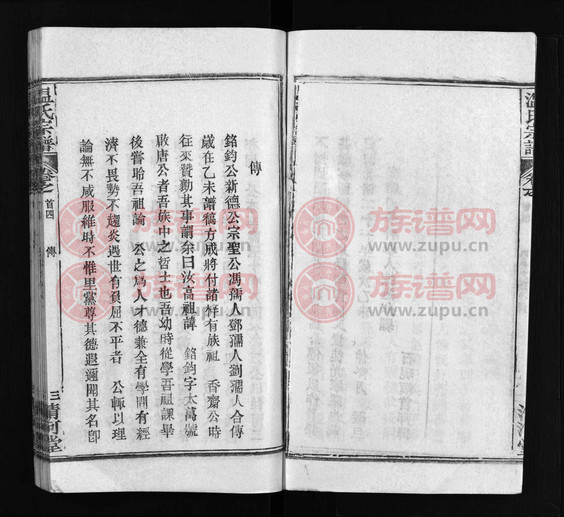 傳
銘鈞公新德公宗聖公馮孺人鄧孺人劉孺人合傳
歲在乙未譜稿方成將付諸梓有族祖 香齋公時
往來贊勷其事謂余曰汝高祖諱 銘鈞字太萬號
啟唐公者吾族中之哲士也吾幼時從學吾祖課畢
後嘗聆吾祖論 公之為人才德兼全有學問有經
濟不畏勢不趨炎遇世有負屈不平者 公輒以理
論無不咸服維時不惟里黨尊其德遐邇聞其名卽
溫氏宗譜
卷之
首四
傳
三
清河堂
溫氏宗譜
卷之
清河堂
族谱网
www.zupu.cn
族谱网
www.zupu.cn
族谱网
www.zupu.cn
族谱网
www.zupu.cn